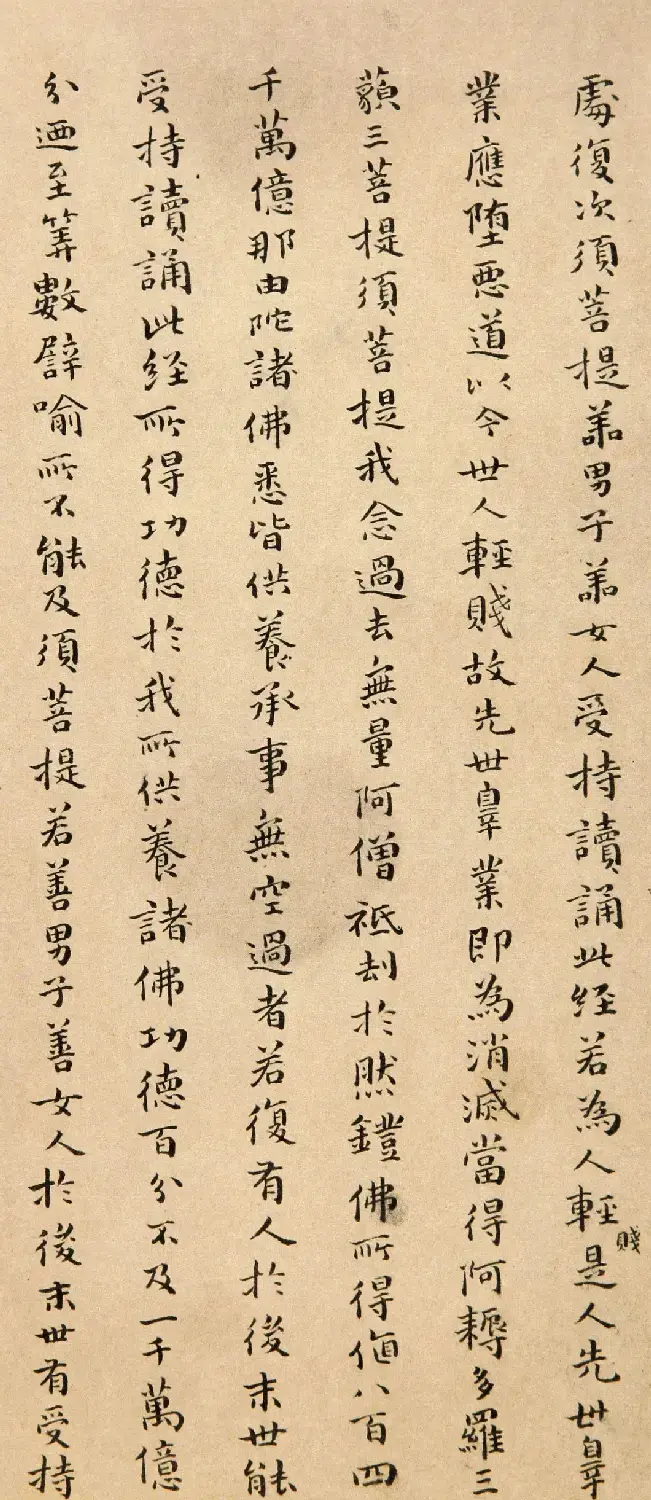 處復次須菩提善男子善女人受持讀誦此經若為人輕賤是人先世辠
業應墮惡道以今世人輕賤故先世辠業即為消滅當得阿耨多羅三
藐三菩提須菩提我念過去無量阿僧祇刧於然鐙佛所得值八百四
千萬億那由陀諸佛悉皆供養承事無空過者若復有人於後末世能
受持讀誦此經所得功德於我所供養諸佛功德百分不及一千萬億
分迺至筭數譬喻所不能及須菩提若善男子善女人於後末世有受持